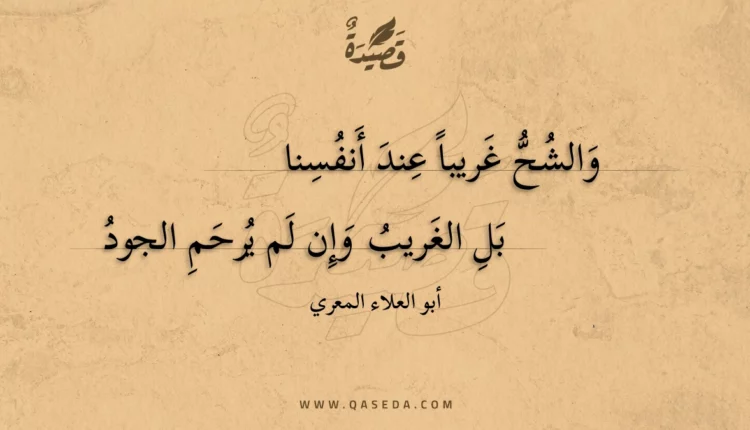 قَصِيدَةٌ
وَالشُحُّ غَريباً عِندَ أَنفُسِنا
بَلِ الغَريبُ وَإِن لَم يُرحَمِ الجودُ
أبو العلاء المعري
WWW.QASEDA.COM